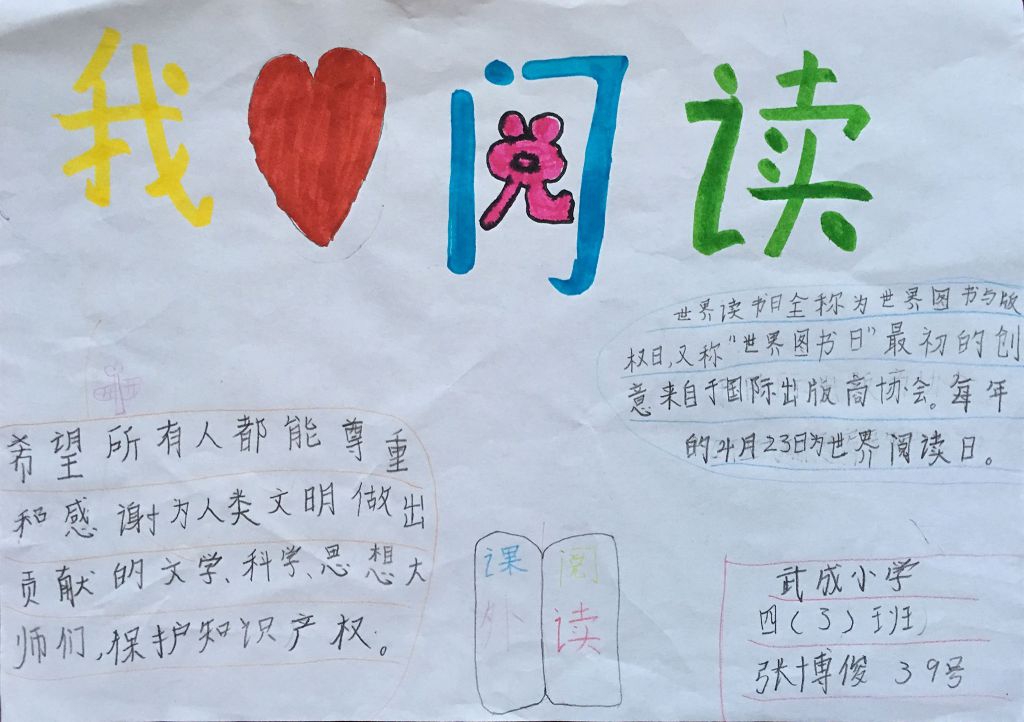 我 阅读
世界读书日全称为世界图书与版
权日,又称“世界图书日”最初的创
意来自于国际出版商协会。每年
的4月23日为世界阅读日。
希望所有人都能尊重
和感谢为人类文明做出
贡献的文学、科学、思想大
师们,保护知识产权。
课外
阅读
武成小学
四(3)班
张博俊 39号